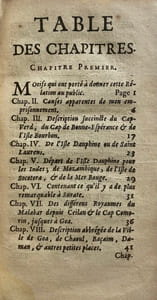 TABLE
DES CHAPITRES.
CHAPITRE PREMIER.
Motifs qui ont porté à donner cette Rélation au public. Page 1
Chap. II. Causes apparentes de mon emprisonnement. 6
Chap. III. Description succincte du Cap-Verd, du Cap de Bonne-Espérance & de l'Isle Bourbon. 17
Chap. IV. De l'Isle Dauphine ou de Saint Laurens, 21
Chap. V. Départ de l'Isle Dauphine pour les Indes, de Mozambique, de l'Isle de Socotora, & de la Mer Rouge. 29
Chap. VI. Contenant ce qu'il y a de plus remarquable à Surate. 31
Chap. VII. Des différens Royaumes du Malabar depuis Ceilan & le Cap Comorin, jusques à Goa. 36
Chap. VIII. Description abbrégée de la Ville de Goa, de Chaul, Baçaim, Daman, & autres petites places. 41
Chap.